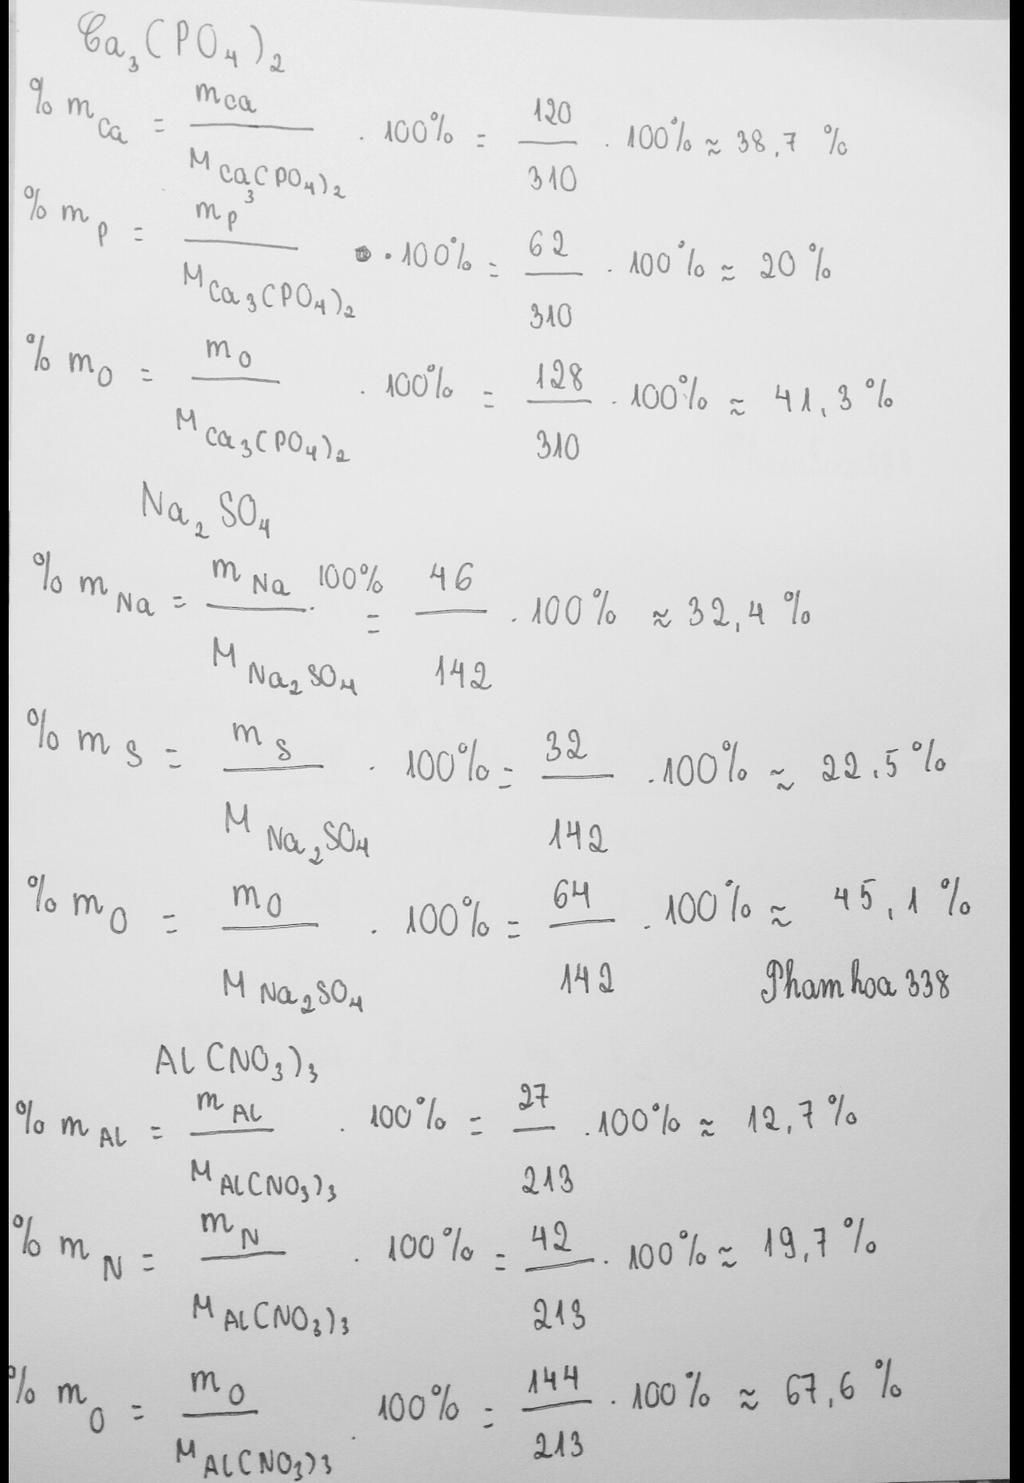 Ca₃(PO₄)₂
% m_Ca = m_Ca / M_Ca₃(PO₄)₂ . 100% = 120 / 310 . 100% ≈ 38,7 %
% m_P = m_P / M_Ca₃(PO₄)₂ . 100% = 62 / 310 . 100% ≈ 20 %
% m_O = m_O / M_Ca₃(PO₄)₂ . 100% = 128 / 310 . 100% ≈ 41,3 %
Na₂SO₄
% m_Na = m_Na / M_Na₂SO₄ . 100% = 46 / 142 . 100% ≈ 32,4 %
% m_S = m_S / M_Na₂SO₄ . 100% = 32 / 142 . 100% ≈ 22,5 %
% m_O = m_O / M_Na₂SO₄ . 100% = 64 / 142 . 100% ≈ 45,1 %
Phamhoa 338
Al(NO₃)₃
% m_Al = m_Al / M_Al(NO₃)₃ . 100% = 27 / 213 . 100% ≈ 12,7 %
% m_N = m_N / M_Al(NO₃)₃ . 100% = 42 / 213 . 100% ≈ 19,7 %
% m_O = m_O / M_Al(NO₃)₃ . 100% = 144 / 213 . 100% ≈ 67,6 %